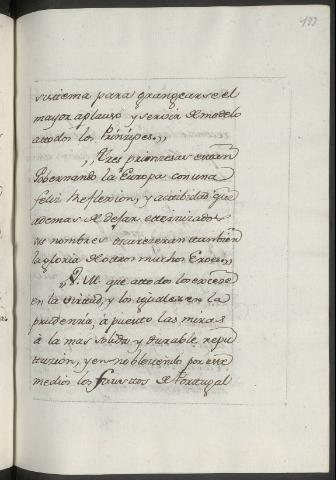 193
sistema para grangearse el
mayor aplauso y servir de modelo
a todos los Principes.,,
,,Tres primeras estan
Gobernando la Europa con una
feliz Reflexion, y actibidad que
ademas de dejar eternizados
sus nombres oscureceran tambien
la gloria de otros muchos Eroes,,
,,V. M. que a todos los excede
en la virtud, y los iguala en la
prudencia, á puesto las miras
á la mas solida y durable repu
tacion, y ennobleciendo por este
medio los faustos de Portugal